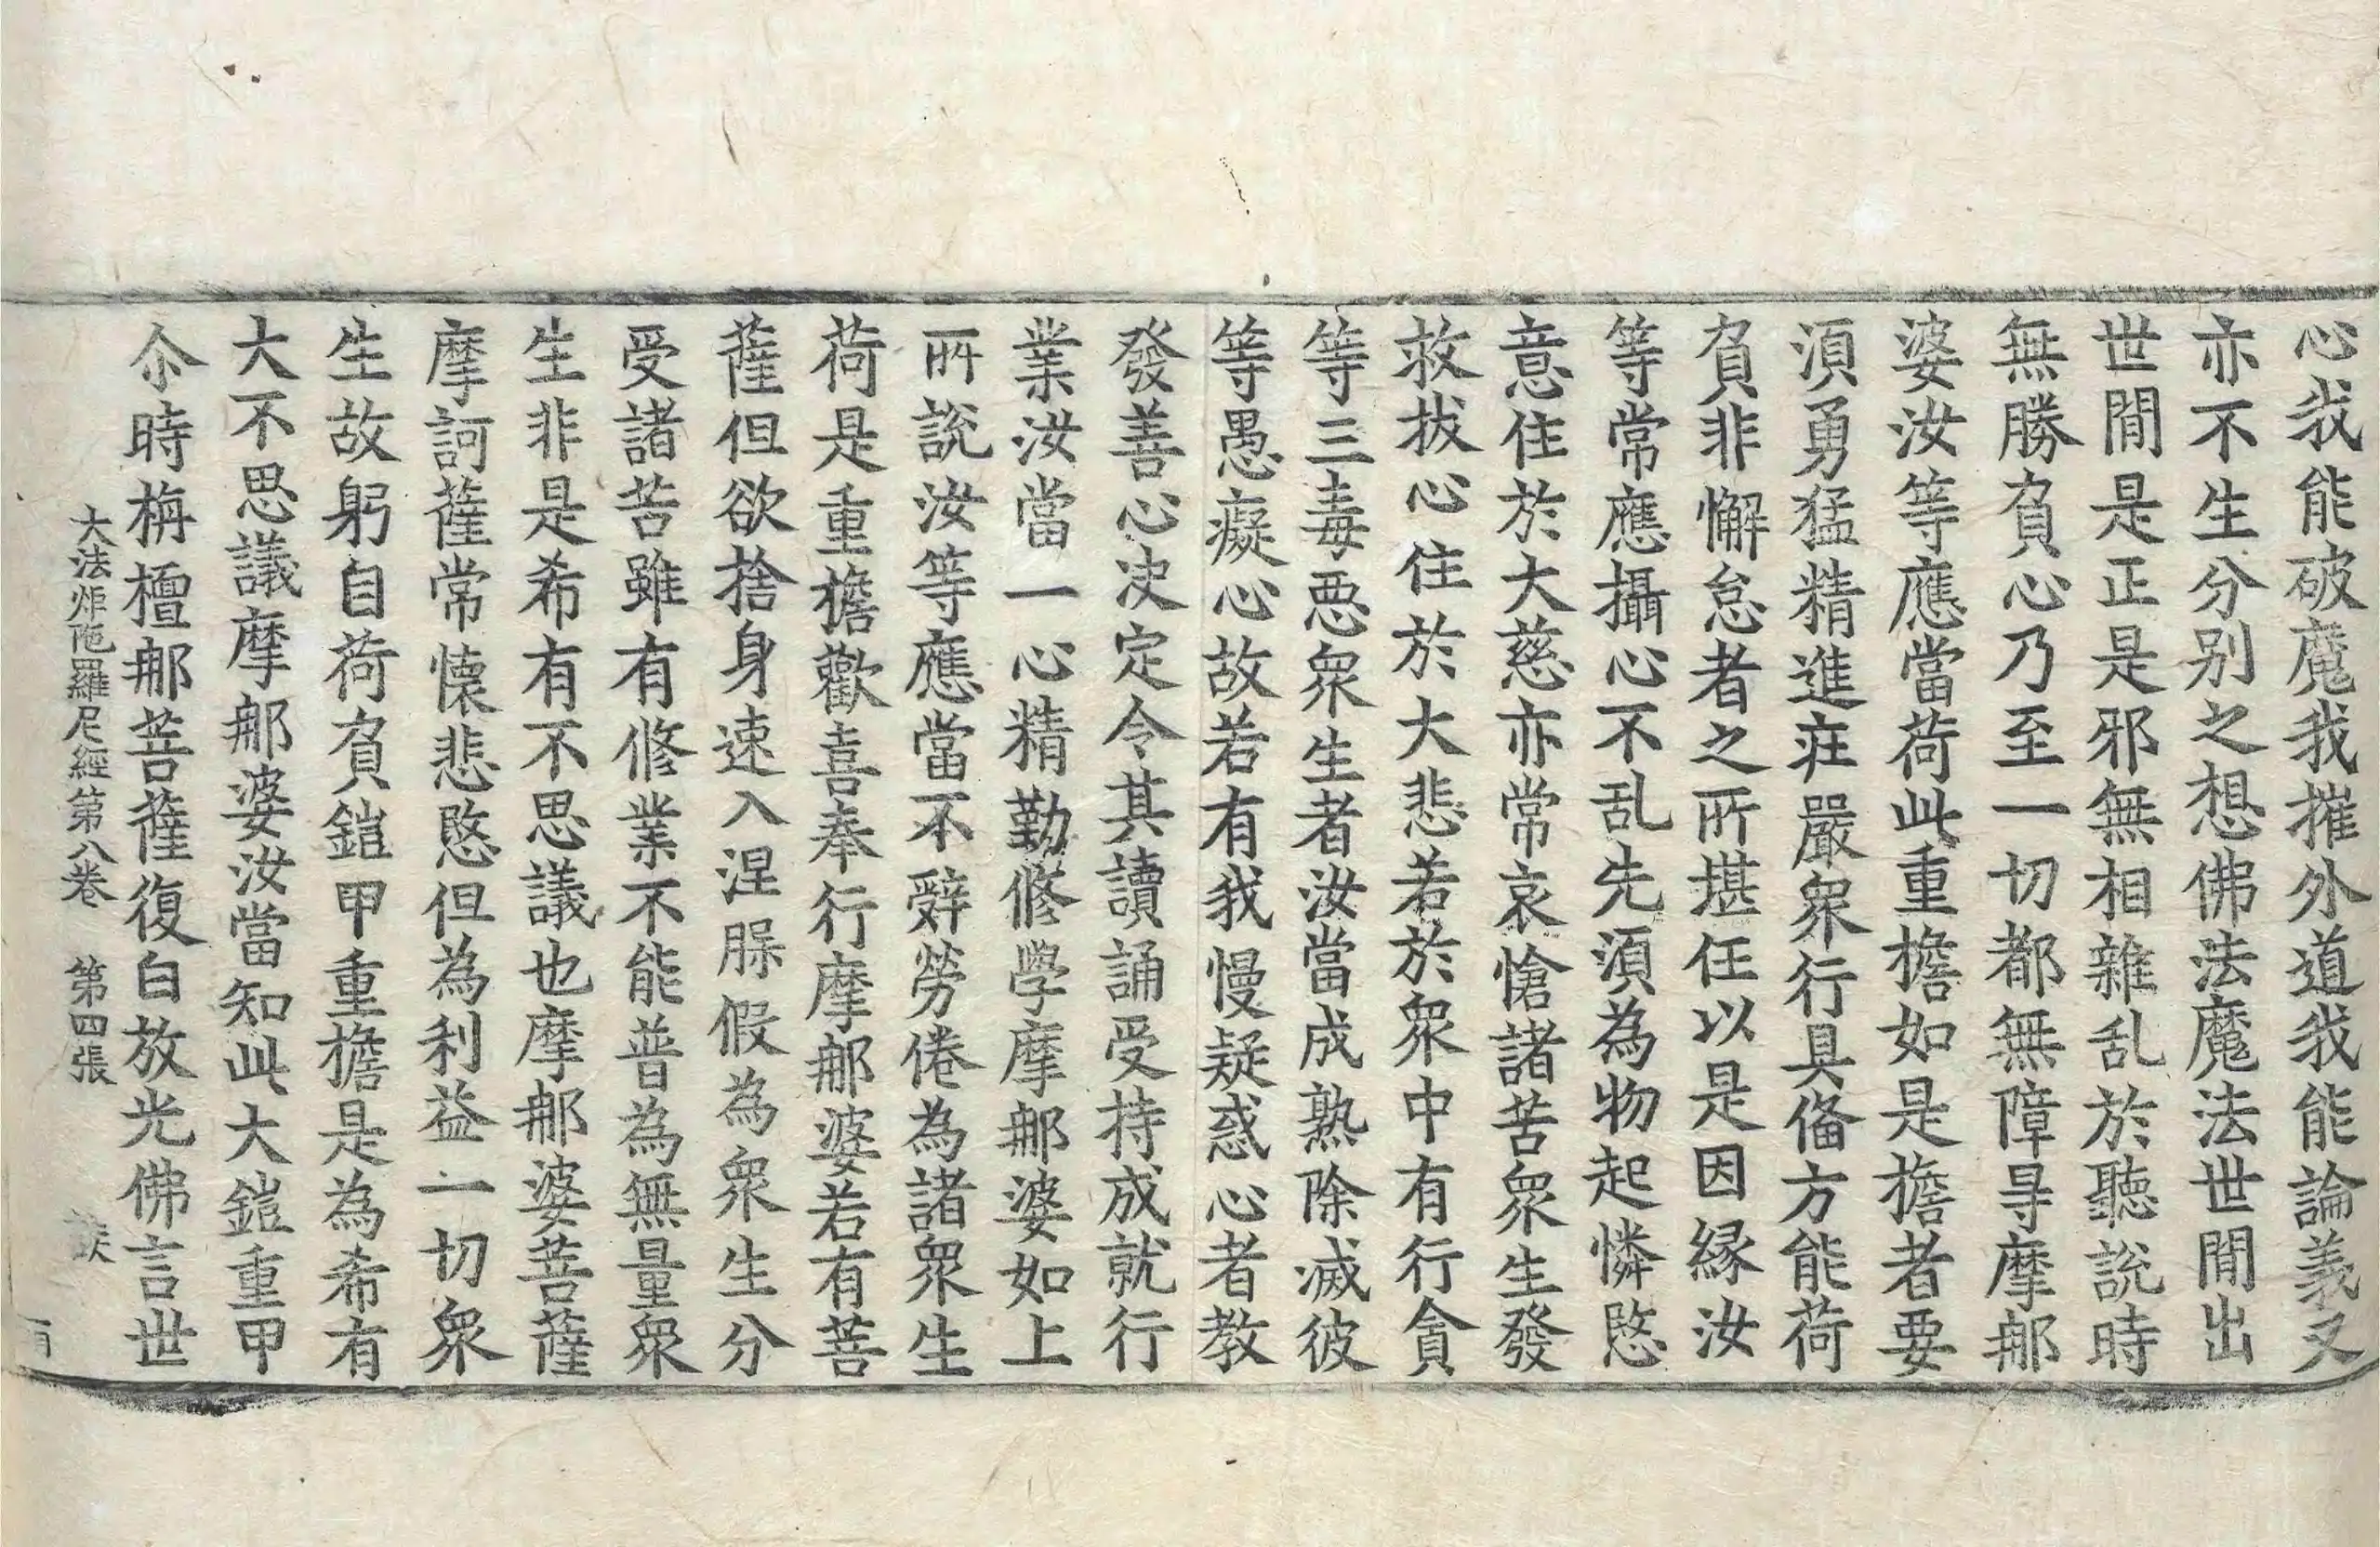 心我能破魔我摧外道我能論義又
亦不生分別之想佛法魔法世間出
世間是正是邪無相雜乱於聽說時
無勝負心乃至一切都無障㝵摩䣸
婆汝等應當荷此重擔如是擔者要
須勇猛精進莊嚴衆行具俻方能荷
負非懈怠者之所堪任以是因縁汝
等常應攝心不乱先須為物起憐愍
意住於大慈亦常哀愴諸苦衆生發
救拔心住於大悲若於衆中有行貪
等三毒惡衆生者汝當成熟除滅彼
等愚癡心故若有我慢疑惑心者教
發善心決定令其讀誦受持成就行
業汝當一心精勤修學摩䣸婆如上
所說汝等應當不辭勞倦為諸衆生
荷是重擔歡喜奉行摩䣸婆若有菩
薩但欲捨身速入涅槃假為衆生分
受諸苦雖有修業不能普為無量衆
生非是希有不思議也摩䣸婆菩薩
摩訶薩常懷悲愍但為利益一切衆
生故躬自荷負鎧甲重擔是為希有
大不思議摩䣸婆汝當知此大鎧重甲
尒時栴檀䣸菩薩復白放光佛言世
大法炬陁羅尼經第八卷　第四張